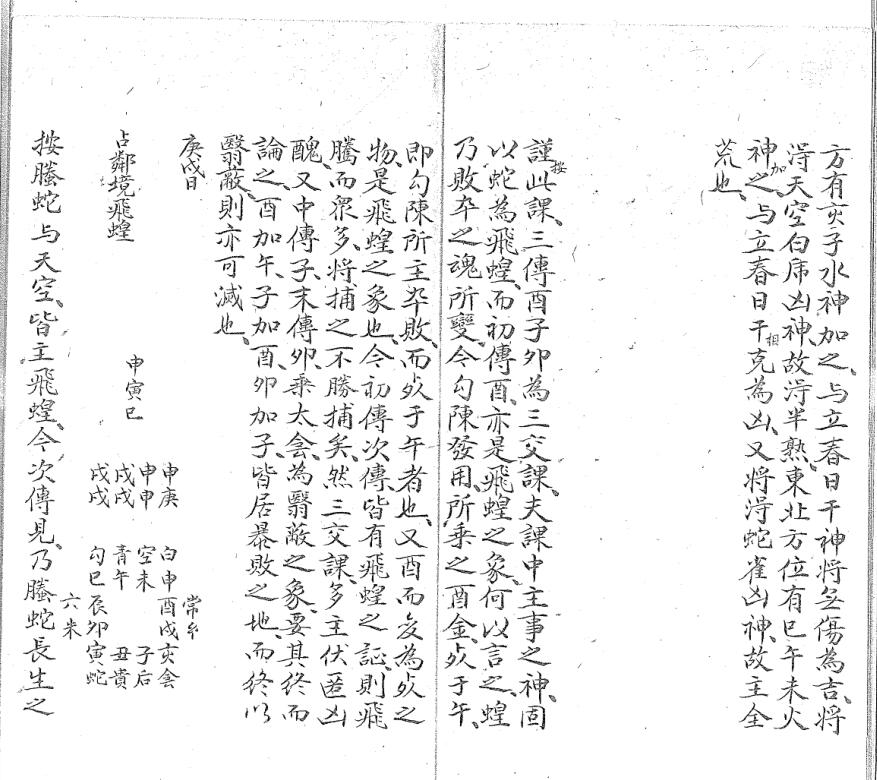 方有亥子水神加之、与立春日干神將無傷為吉、將
淂天空白虎凶神故淂半熟、東北方位有巳午未火
神加之、与立春日干相克為凶、又將淂蛇雀凶神、故主全
荒也、
謹按此課、三傳酉子卯為三交課、夫課中主事之神、固
以蛇為飛蝗、而初傳酉、亦是飛蝗之象、何以言之、蝗
乃敗卒之魂所變、今勾陳發用、所乘之酉金、死于午、
即勾陳所主卒敗、而死于午者也、又酉而反為死之
物、是飛蝗之象也、今初傳次傳皆有飛蝗之証、則飛
騰而眾多、將捕之不勝捕矣、然三交課、多主伏匿凶
醜、又中傳子、末傳卯、乘太侌、為翳蔽之象、要其終而
論之、酉加午、子加酉、卯加子、皆居暴敗之地、而終以
翳蔽、則亦可滅也、
庚戌日
占鄰境飛蝗
申寅巳
申庚
申申
戌戌
戌戌
常玄
白申酉戌亥侌
空未 子后
青午 丑貴
勾巳辰卯寅蛇
六朱
按螣蛇与天空、皆主飛蝗、今次傳見、乃螣蛇長生之